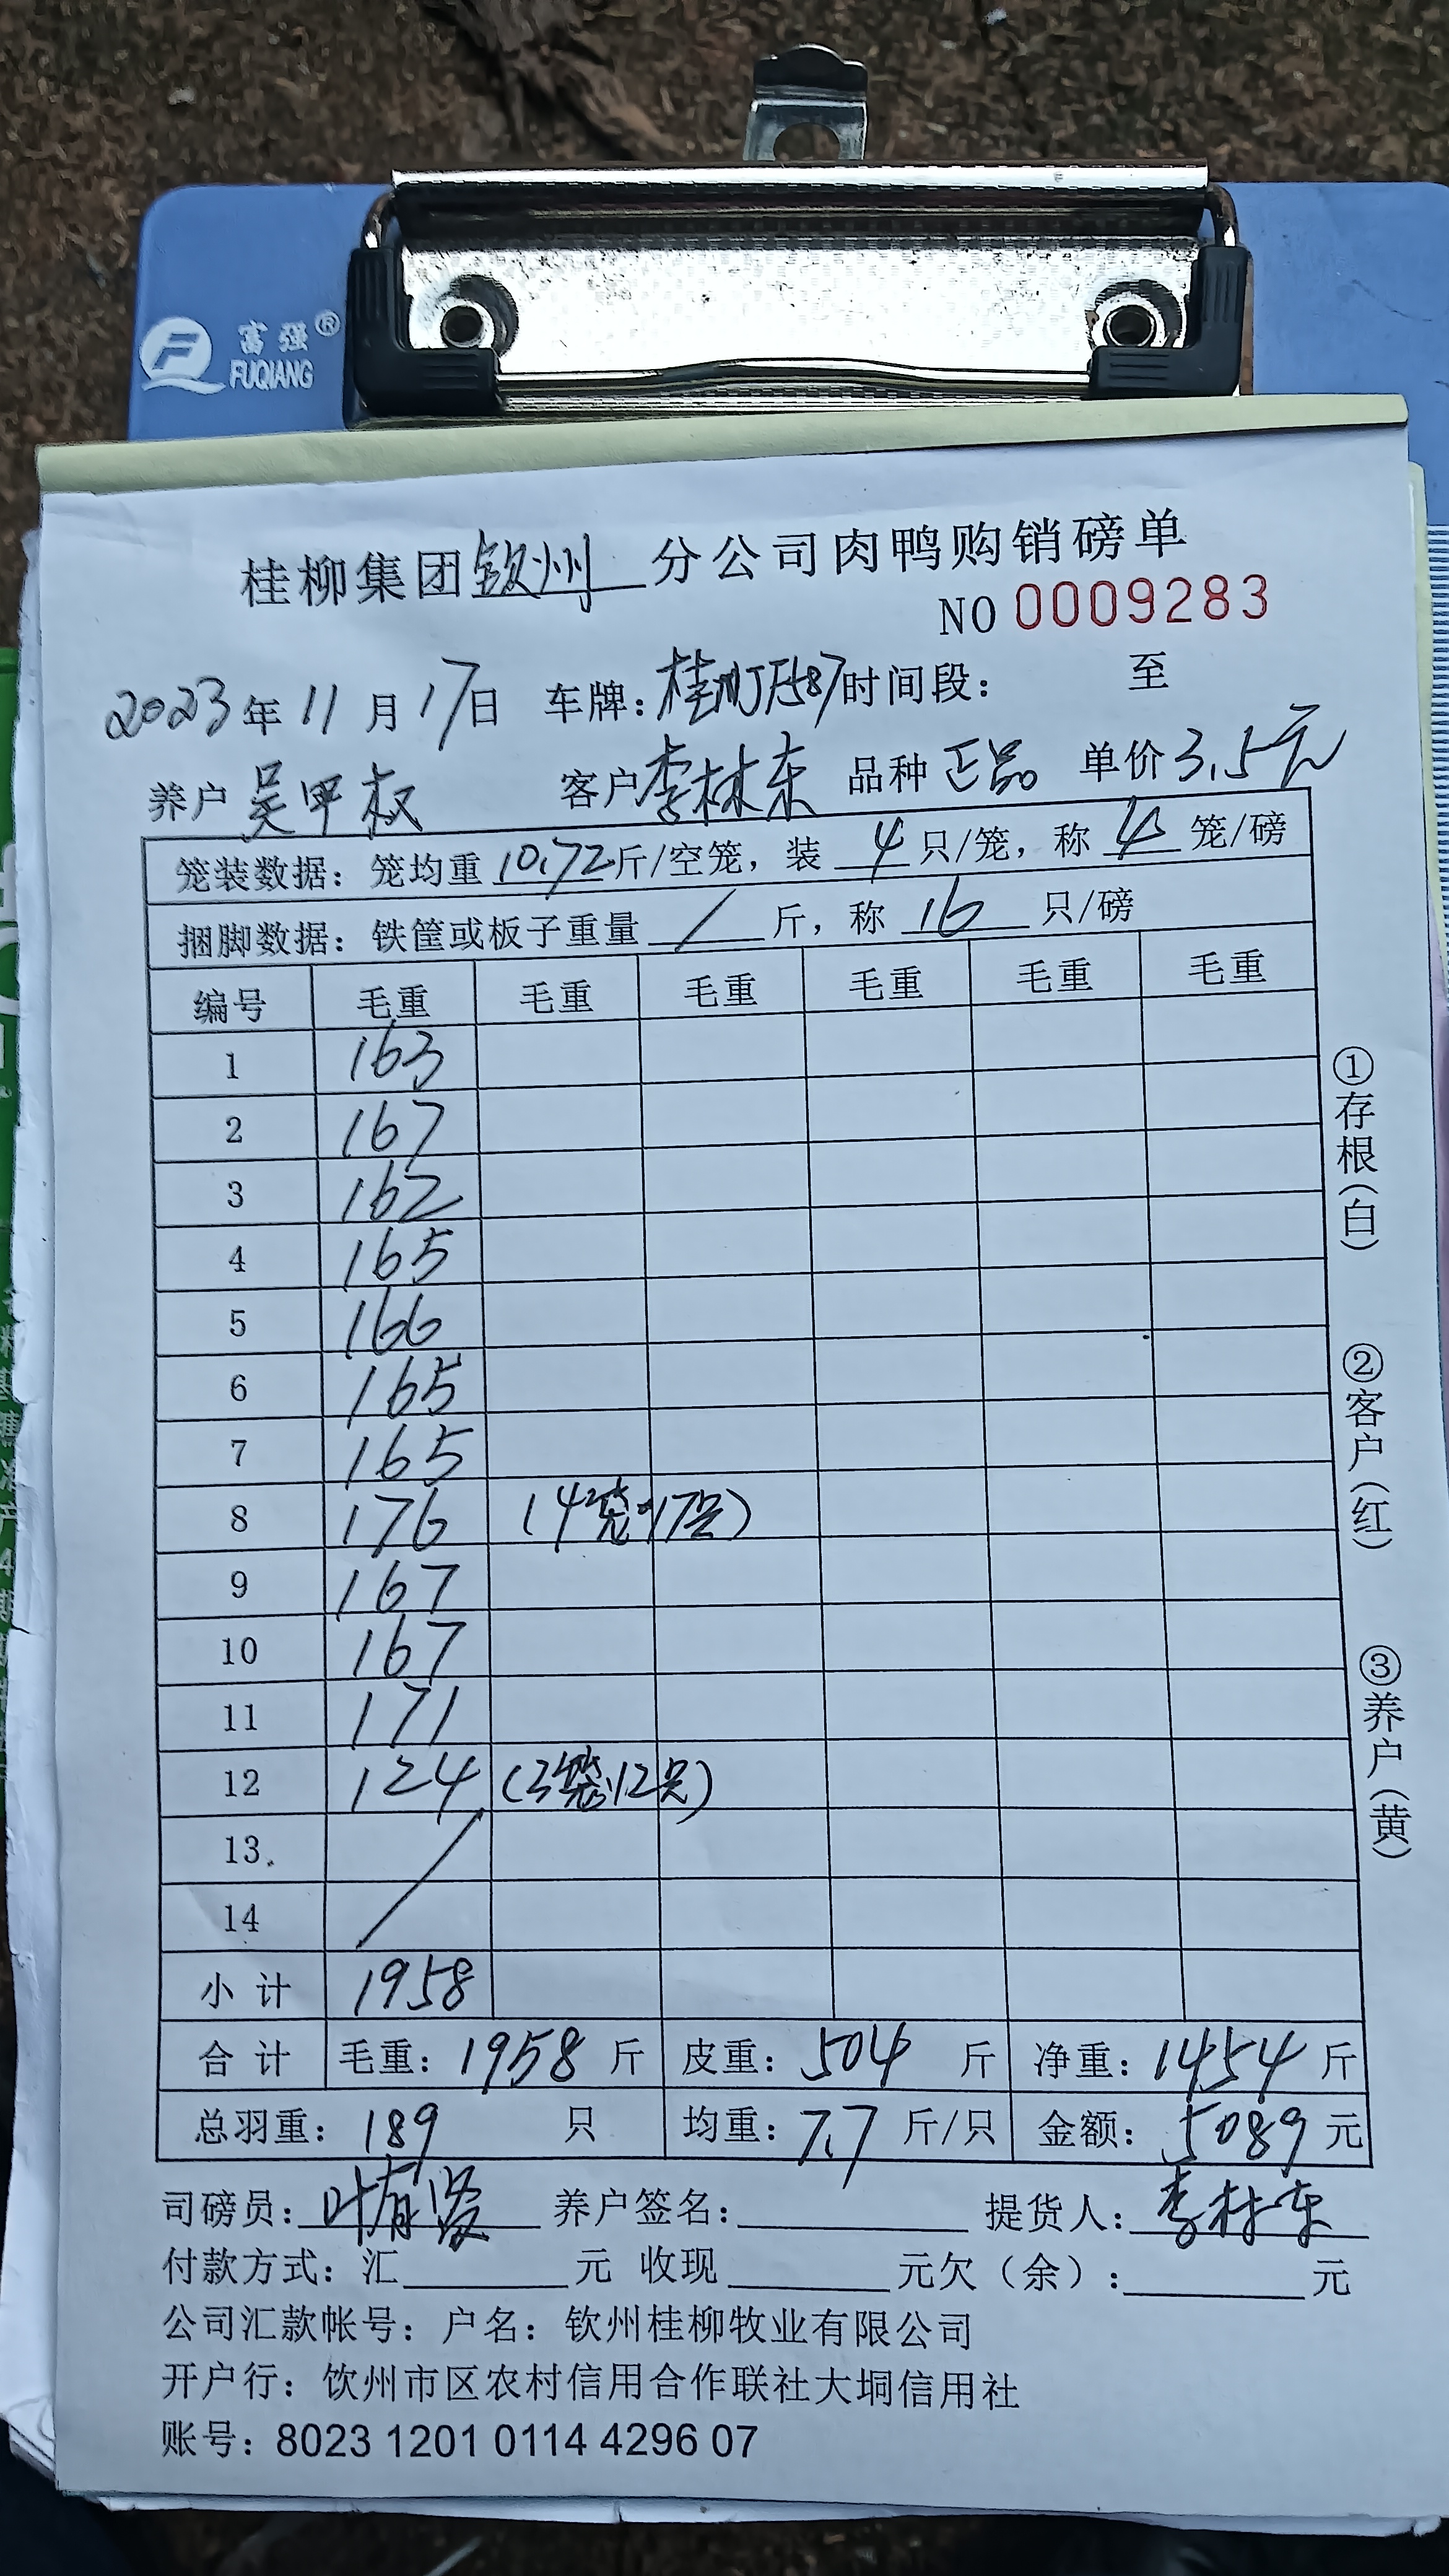 富强®
FUQIANG
桂柳集团钦州分公司肉鸭购销磅单
NO 0009283
2023年11月17日 车牌: 时间段: 至
养户 吴甲权 客户 李林东 品种 正品 单价3.5元
笼装数据: 笼均重 10.72斤/空笼, 装 4 只/笼, 称 4 笼/磅
捆脚数据: 铁筐或板子重量 / 斤, 称 16 只/磅
编号 毛重 毛重 毛重 毛重 毛重 毛重
1 163
2 167
3 162
4 165
5 166
6 165
7 165
8 176 (4笼17只)
9 167
10 167
11 171
12 124 (3笼12只)
13
14
小计 1958
合计 毛重: 1958 斤 皮重: 504 斤 净重: 1454 斤
总羽重: 189 只 均重: 7.7 斤/只 金额: 5089 元
司磅员: 养户签名: 提货人: 李林东
付款方式: 汇 元 收现 元欠(余): 元
公司汇款帐号: 户名: 钦州桂柳牧业有限公司
开户行: 钦州市区农村信用合作联社大垌信用社
账号: 8023 1201 0114 4296 07
①存根(白)
②客户(红)
③养户(黄)